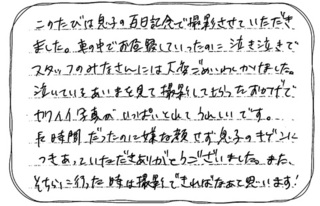 このたびは息子の百日記念で撮影させていただき
ました。車の中でお昼寝していったのに、泣き泣きで
スタッフのみなさんには大変ごめいわくかけました。
泣いているあいまを見て撮影してもらったおかげで
カワイイ写真がいっぱいとれてうれしいです。
長時間だったのに嫌な顔せず息子のキゲンに
つきあっていただきありがとうございました。また、
そちらに行った時は撮影できればなあと思います!